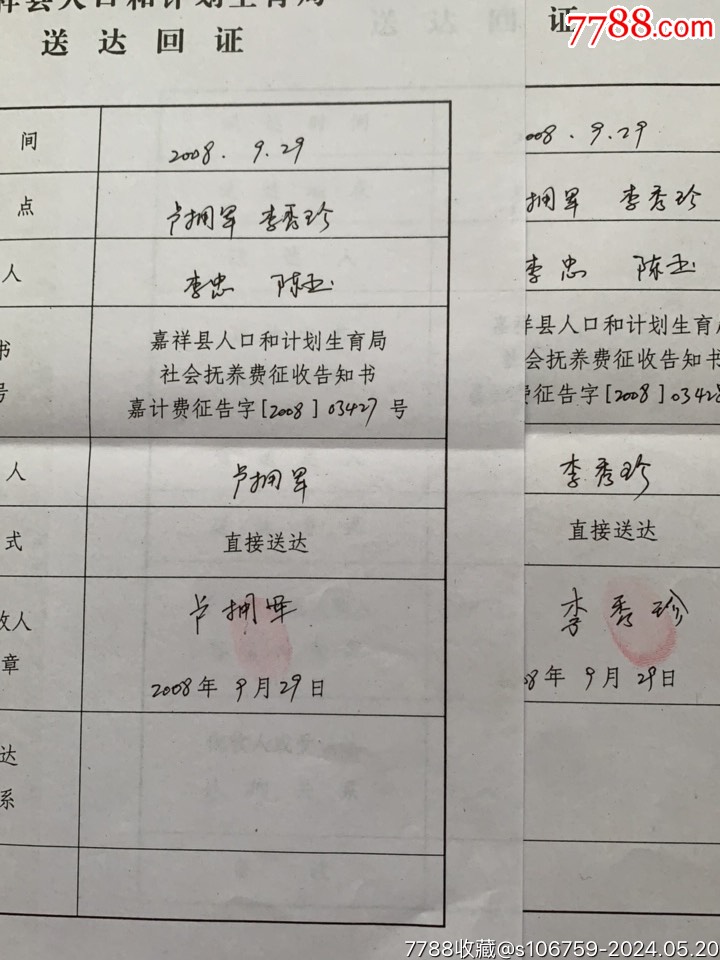 祥县人口和计划生育局
送达回证
间
2008.9.29
点
卢拥军 李秀珍
人
李忠 陈玉
书
号
嘉祥县人口和计划生育局
社会抚养费征收告知书
嘉计费征告字[2008]03427号
人
卢拥军
式
直接送达
收人
章
卢拥军
2008年9月29日
达
系
证
008.9.29
拥军 李秀珍
李忠 陈玉
祥县人口和计划生育
会抚养费征收告知
费征告字[2008]03428
李秀珍
直接送达
李秀珍
08年9月29日
7788.com
7788收藏@s106759-2024.05.20